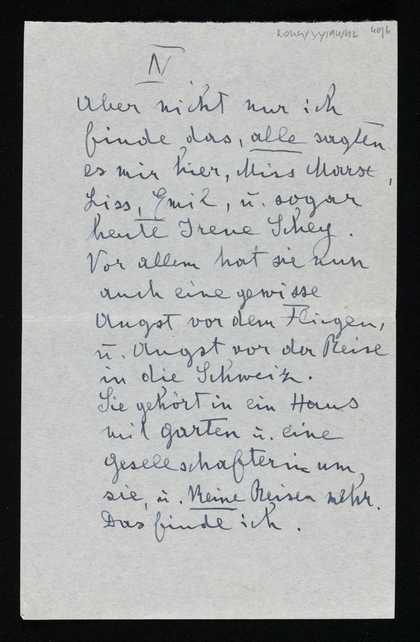 IV
Aber nicht nur ich
finde das, alle sagten
es mir hier, Miss Marse,
Liss, Emil, u. sogar
heute Irene Schey.
Vor allem hat sie nun
auch eine gewisse
Angst vor dem Fliegen,
u. Angst vor der Reise
in die Schweiz.
Sie gehört in ein Haus
mit Garten u. eine
Gesellschafterin um
sie, u. Keine Reisen mehr.
Das finde ich.